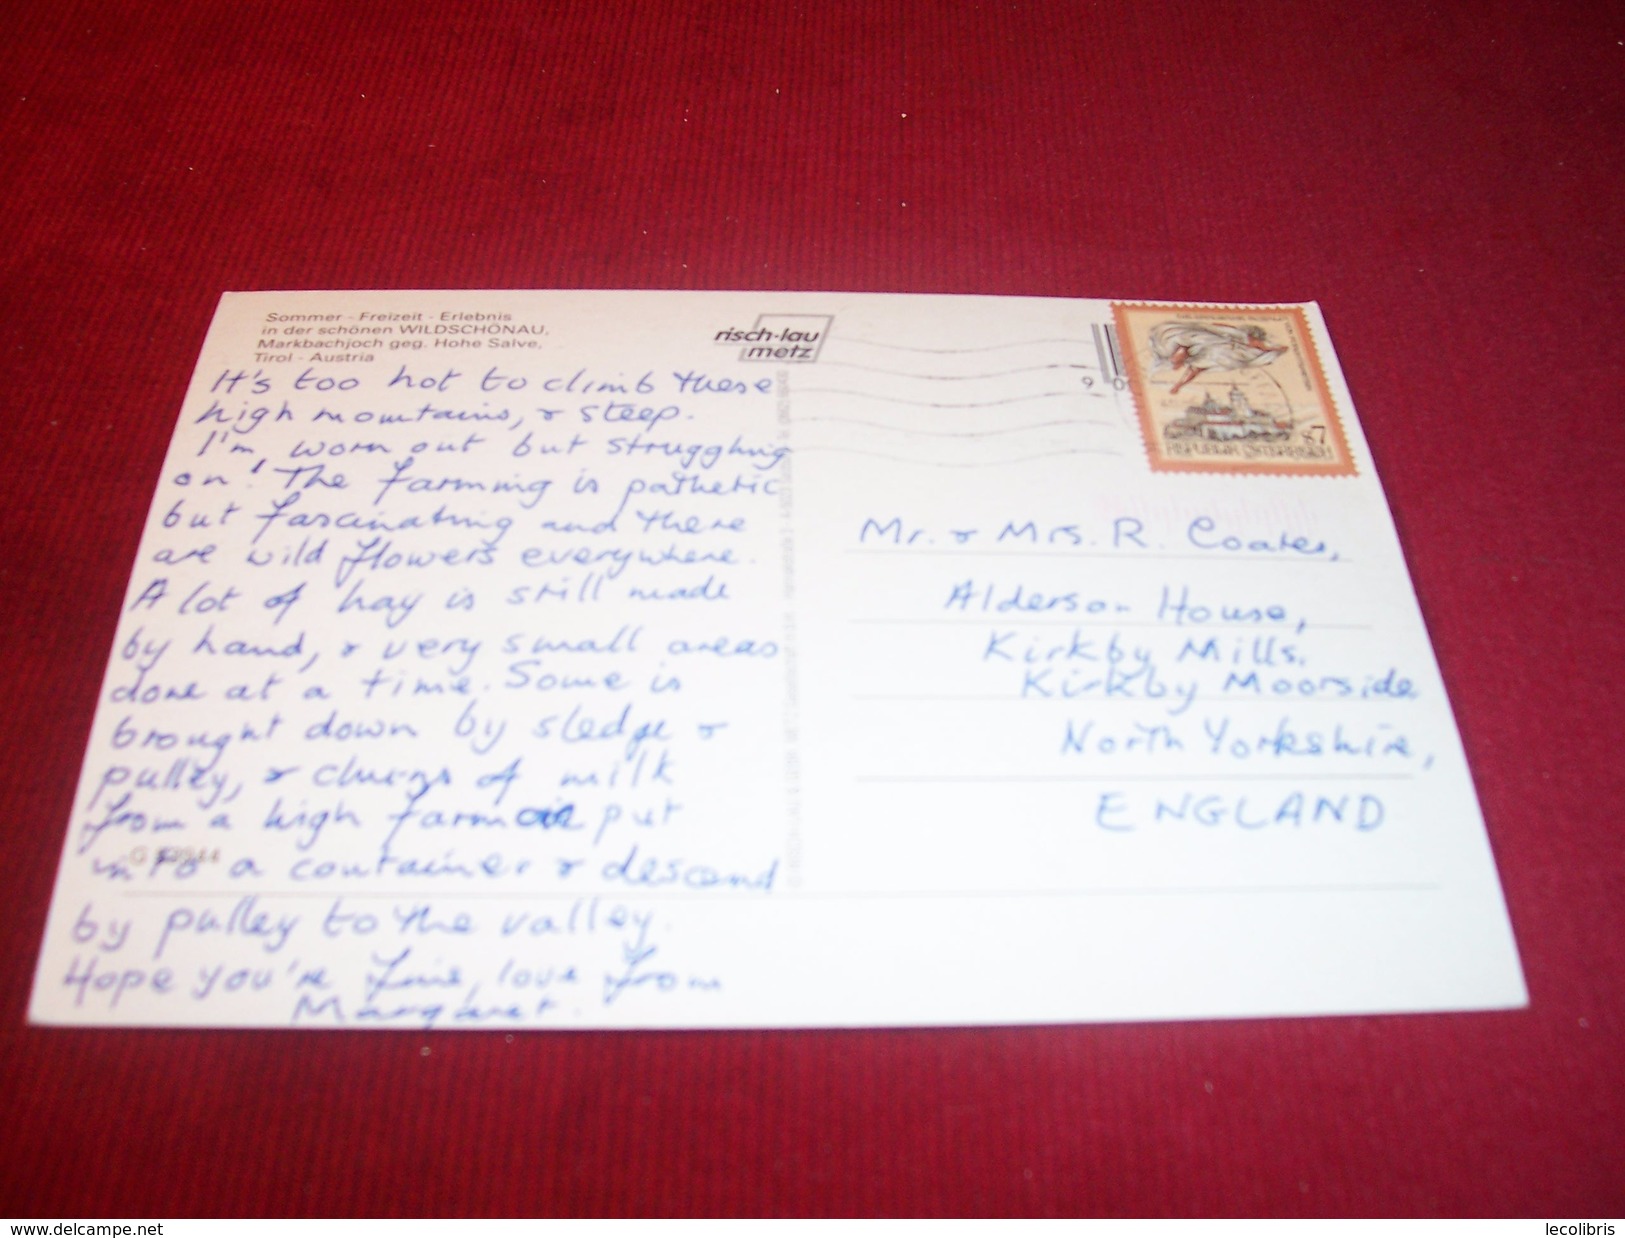 Sommer - Freizeit - Erlebnis
in der schönen WILDSCHÖNAU,
Markbachjoch geg. Hohe Salve,
Tirol - Austria
risch-lau
metz
It's too hot to climb these
high mountains, & steep.
I'm worn out but struggling
on! The farming is pathetic
but fascinating and there
are wild flowers everywhere.
A lot of hay is still made
by hand, & very small areas
done at a time. Some is
brought down by sledge &
pulley, & churns of milk
from a high farm put
into a container & descend
by pulley to the valley.
Hope you're fine, love from
Margaret.
Mr. & Mrs. R. Coates,
Alderson House,
Kirkby Mills.
Kirkby Moorside
North Yorkshire,
ENGLAND
S7
REPUBLIK ÖSTERREICH
delcampe.net
lecolibris